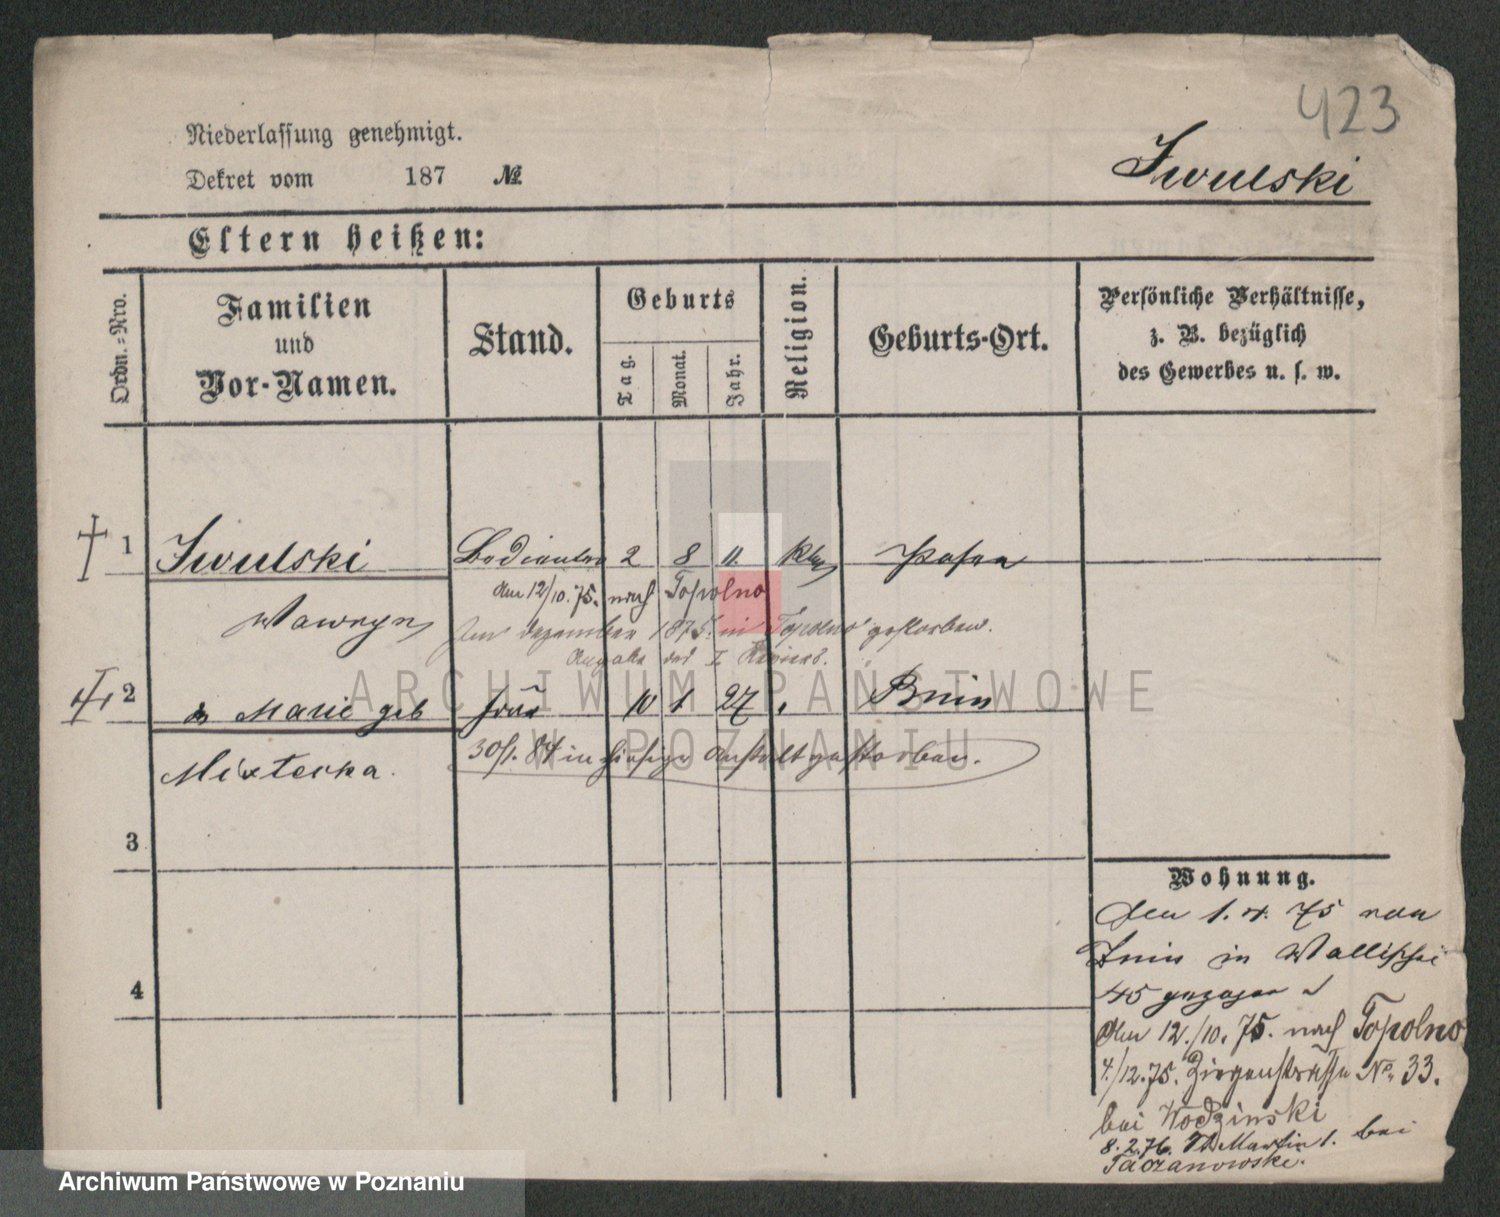 423
Niederlassung genehmigt.
Dekret vom 187 №
Iwulski
Eltern heißen:
Ordn.-Nro.
Familien
und
Vor-Namen.
Stand.
Geburts
Tag.
Monat.
Jahr.
Religion.
Geburts-Ort.
Persönliche Verhältnisse,
z. B. bezüglich
des Gewerbes u. s. w.
1 Iwulski Bedienter 2 8 11. kth Posen
Am 12/10. 75. nach Topolno
Wawrzyn
Im Dezember 1875. in Topolno gestorben.
Angabe des I Reviers.
2 Marie geb Frau 10 1 27 Bnin
30/1. 84 in hiesiger Anstalt gestorben.
Mixtecka.
3
4
Wohnung.
Den 1. 4. 75 von
in Wallischei
45 gezogen
Am 12./10. 75. nach Topolno
4./12. 75. Ziegenstrasse No. 33.
bei Wodzinski
8. 2. 76. St Martin 1. bei
Taczanowski.
ARCHIWUM PAŃSTWOWE
W POZNANIU
Archiwum Państwowe w Poznaniu